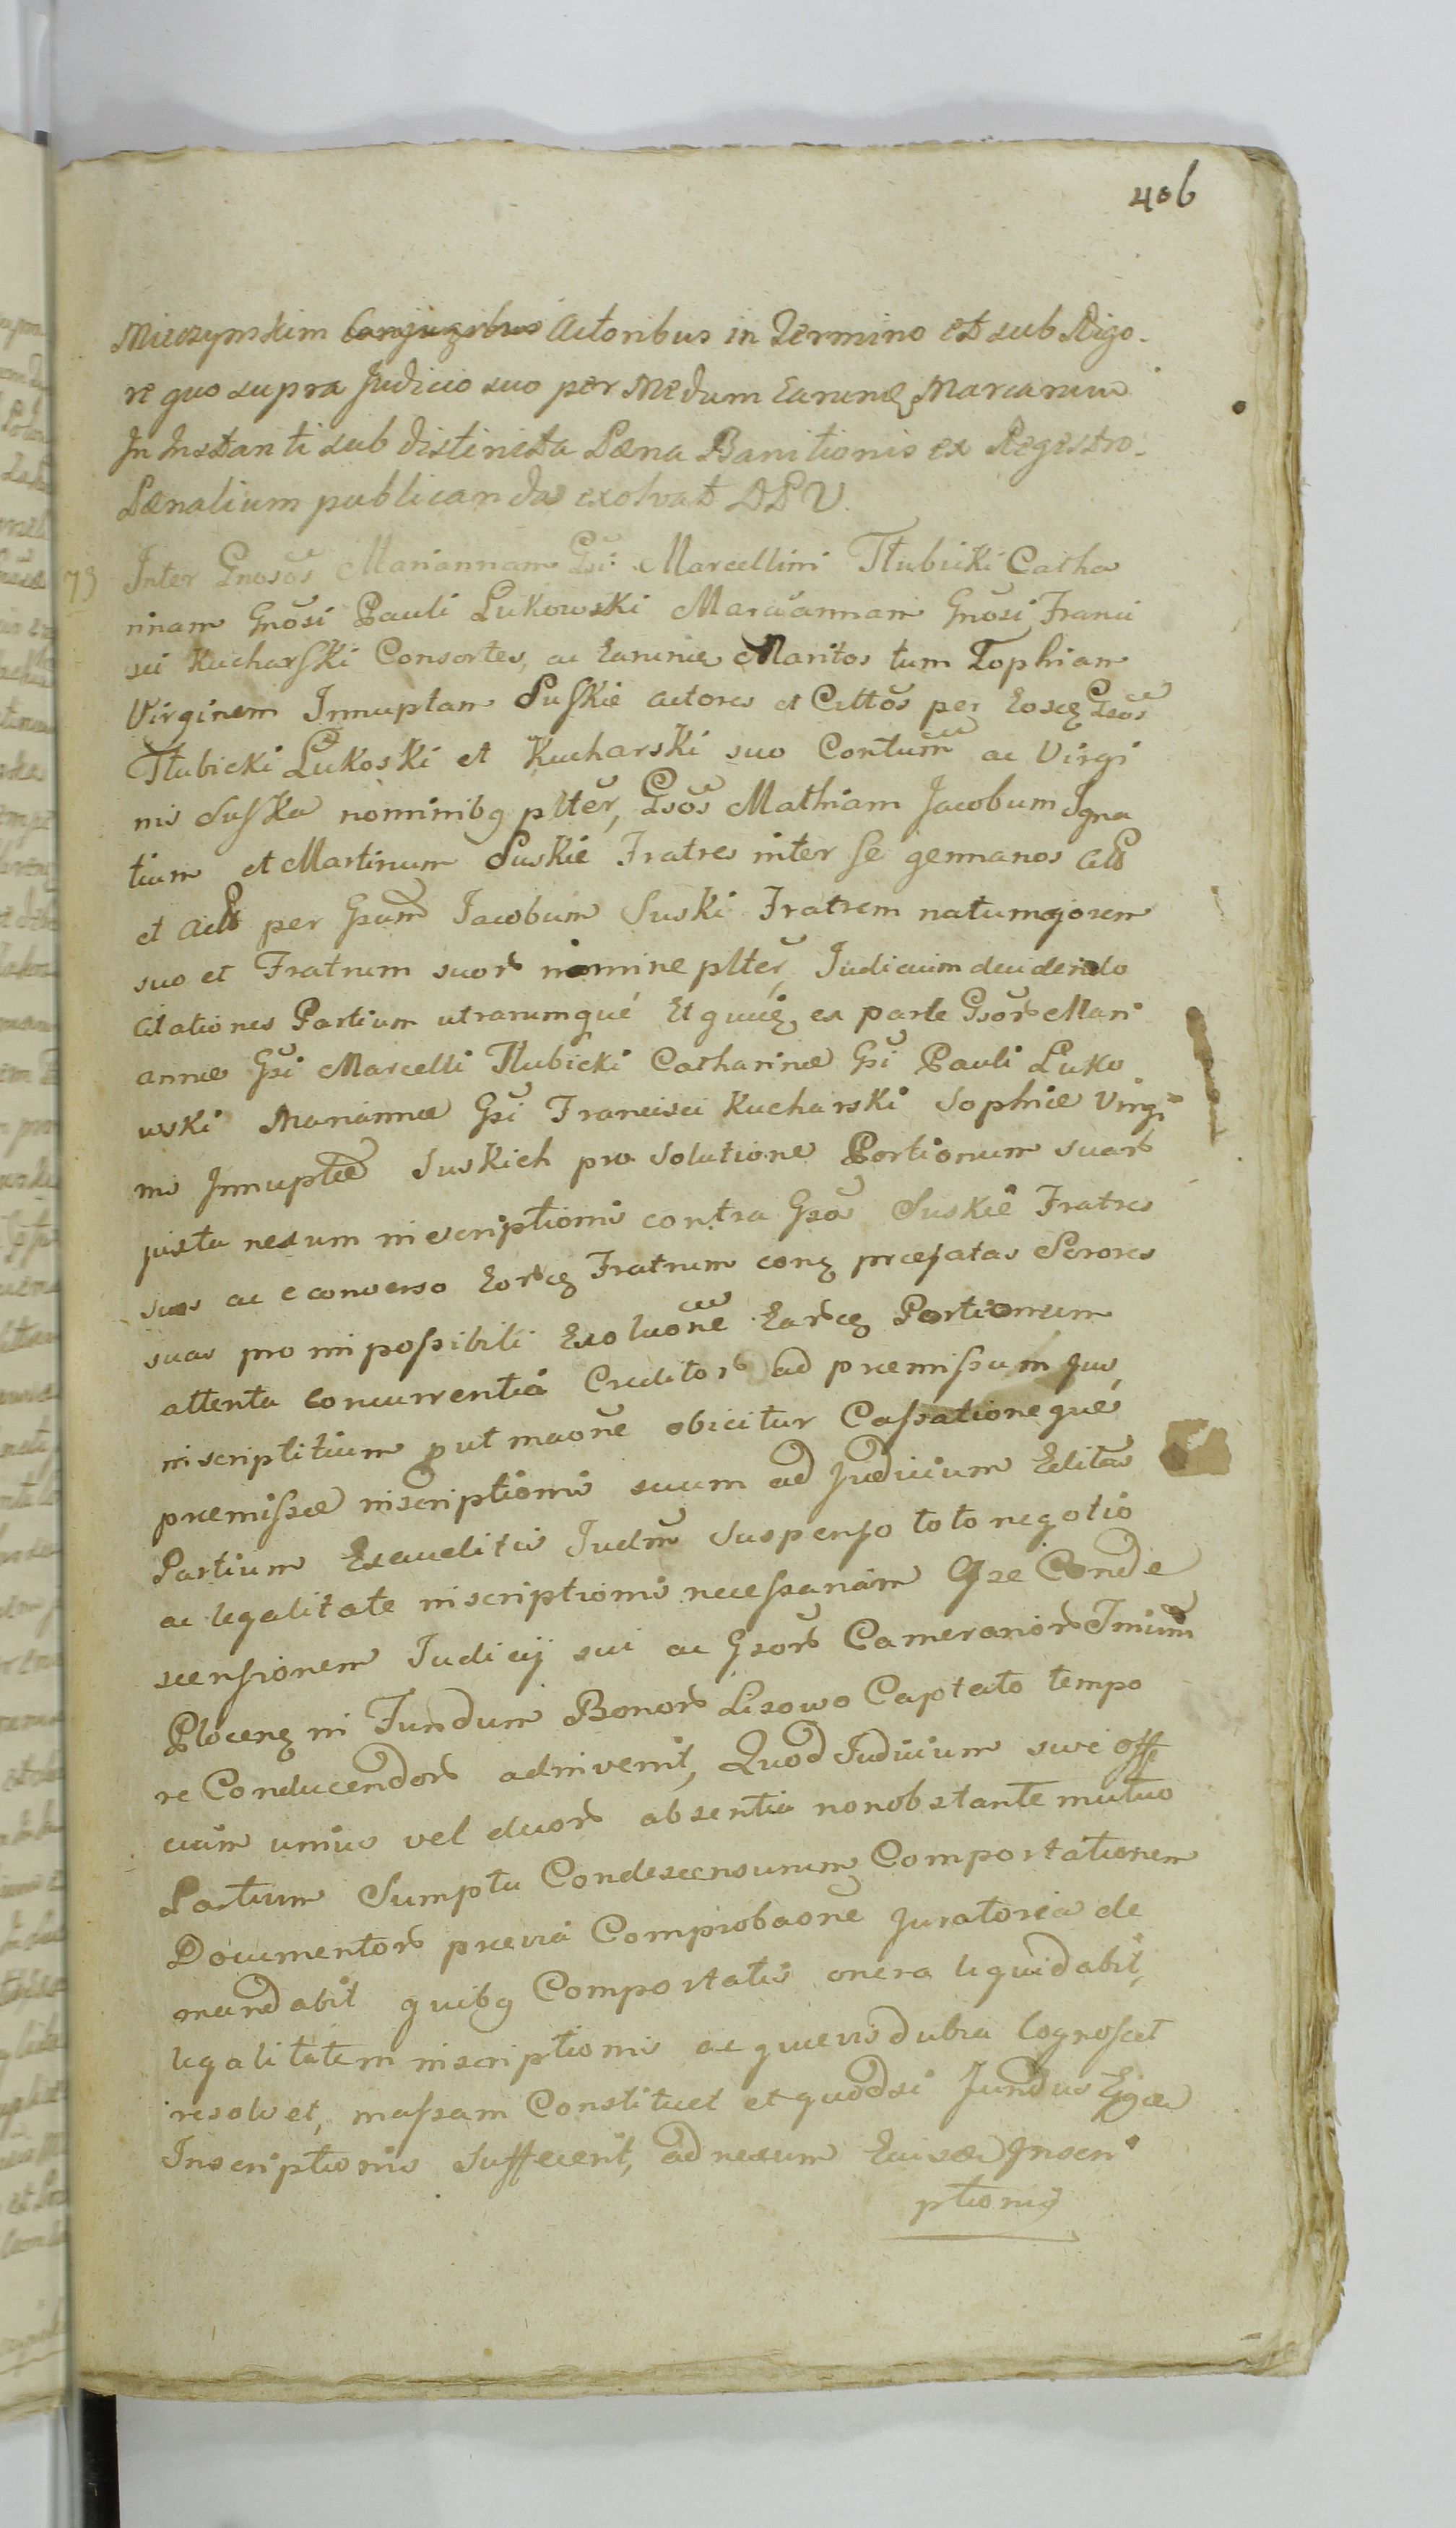 406
Mierzynskim Conjugibus Actoribus in Termino et sub Rigo-
re quo supra Judicio suo per Medium Earunq Marcarum
In Instanti sub distincta Pæna Banitionis ex Regestro
Pænalium publicandas exolvat DPV.
73 Inter Gnosos Mariannam Gsi: Marcellini Tłubicki Catha
rinam Gnosi Pauli Łukowski Mariannam Gnosi Franci
sci Kucharski Consortes, ac Earunq Maritos tum Zophiam
Virginem Innuptam Suskie actores et Cittos per Eosq Gsos
Tłubicki Łukoski et Kucharski suo Contum ac Virgi
nis Suska nominibq plter, Gsos Mathiam Jacobum Igna
tium et Martinum Suskie Fratres inter se germanos
et per Gsum Jacobum Suski Fratrem natu majorem
suo et Fratrum suor nomine plter, Judicium decidendo
Citationes Partium utrarumque Et quidq ex parte Gsor Mari
annæ Gsi Marcelli Tłubicki Catharinæ Gsi Pauli Łuko
wski Mariannæ Gsi Francisci Kucharski Sophiæ Virgi
nis Innuptæ Suskich pro solutione Portionum suar
juxta nexum inscriptionis contra Gsos Suskie Fratres
suos ac e converso Eorq Fratrum conq præfatas Sorores
suas pro impossibili Exoluone Earq Portionum
attenta concurrentia Creditor ad præmissum Jus
inscriptitium put maone obicitur Cassationeque
præmissæ inscriptionis suum ad Judicium Editas
Partium Exauditis Judm Suspenso toto negotio
ac legalitate inscriptionis necessariam Esse Conde
scensionem Judicij sui ac Gsor Camerarior Tmium
Plocenq in Fundum Bonor Lisowo Captato tempo
re Conducendor adinvenit, Quod Judicium sive offi
cium unius vel duor absentia nonobstante mutuo
Partium Sumptu Condescensurum Comportationem
Documentor prævia Comprobaone Juratoria de
mandabit quibq Comportatis onera liquidabit,
legalitatem inscriptionis ac quævis dubia Cognoscet
resolvet, massam Constituet et quodsi fundus
Inscriptionis suffecerit, ad nexum Inscri
ptionis